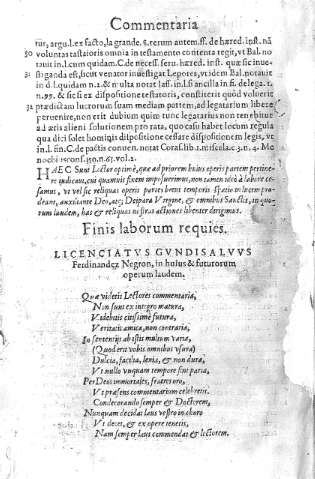 Commentaria
tur, argu.l.ex facto, la grande. §. rerum autem. ff. de hæred. inst. nã
50 voluntas testatoris omnia in testamento contenta regit, vt Bal. no-
tauit in l. cum quidam. C. de necess. seru. hæred. inst. quæ sic inue-
stiganda est, sicut venator inuestigat Lepores, vt idem Bal. notauit
in d. l. quidam n. 2. & multa notat Iass. in l. si ancilla in fi. delega. 1.
n. 95. & si ex dispositione testatoris, constiterit quòd voluerit
prædictam lucrorum suam mediam partem, ad legatarium libere
peruenire, non erit dubium quim tunc legatarius non teneatur
ad æris alieni solutionem pro rata, quo casu habet locum regula
qua dici solet hominis dispositione cessare dispositionem legis, vt
in l. fin. C. de pactis conuen. notat Coras. lib. 1. miscela. c. 3. n. 4. Me
nochi. consi. 190. n. 63. vol. 2.
HAEC Sunt Lector optime, quæ ad priorem huius operis partem pertine-
re iudicaui, cui quamuis finem imposuerimus, non tamen ideò à labore ce-
samus, vt vel sic reliquas operis partes breui temporis spacio in lucem prode-
ant, auxiliante Deo, atq; Deipara Virgine, & omnibus Sanctis, in quo-
rum laudem, has & reliquas nostras actiones libenter dirigimus.
Finis laborum requies.
LICENCIATVS GVNDISALVVS
Ferdinandez Negron, in huius & futurorum
operum laudem.
Quæ videtis Lectores commentaria,
Non sunt ex integro matura,
Videbitis citissimè futura,
Veritatis amica, non contraria,
In sententijs ab istis multum varia,
(Quod erit vobis omnibus vsura)
Dulcia, facilia, lenia, & non dura,
Vt nullo vnquam tempore sint paria,
Per Deos immortales, fratres oro,
Vt præsens commentarium celebretis.
Condecorando semper & Doctorem,
Nunquam decidat laus vestro in choro
Vt decet, & ex opere tenetis,
Nam semper laus commendat & lectorem.